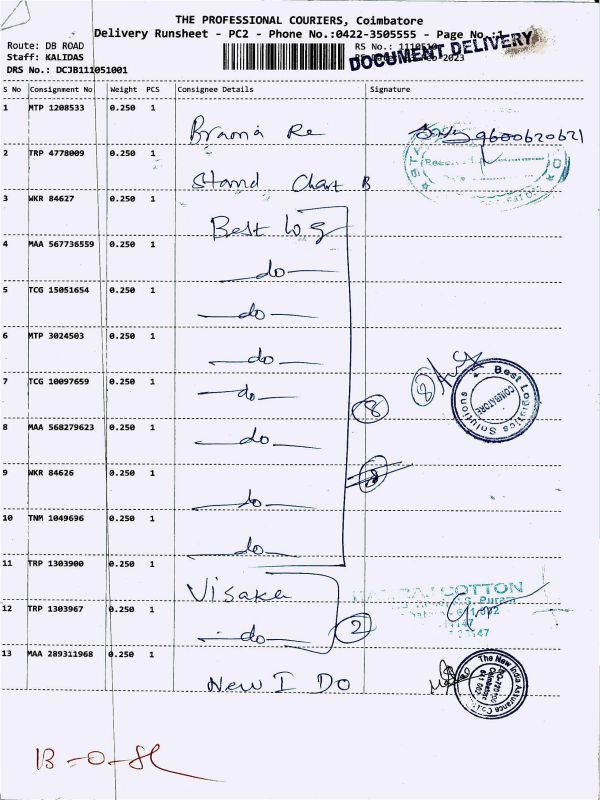 THE PROFESSIONAL COURIERS, Coimbatore
Delivery Runsheet - PC2 - Phone No.:0422-3505555 - Page No.
Route: DB ROAD
RS No.:
Staff: KALIDAS
2023
DOCUMENT DELIVERY
DRS No.: DCJB111051001
S No Consignment No Weight PCS Consignee Details Signature
1 MTP 1208533 0.250 1 9600620621
2 TRP 4778009 0.250 1 Stand Chart B
3 WKR 84627 0.250 1 Best Log
4 MAA 567736559 0.250 1 do
5 TCG 15051654 0.250 1 do
6 MTP 3024503 0.250 1 do
7 TCG 10097659 0.250 1 do
8 Best Logistics Solutions COIMBATORE
8
8 MAA 568279623 0.250 1 do
9 WKR 84626 0.250 1 do
10 TNM 1049696 0.250 1 do
11 TRP 1303900 0.250 1 Visaka
COTTON
12 TRP 1303967 0.250 1 do
2
13 MAA 289311968 0.250 1 New I Do
The New India Assurance